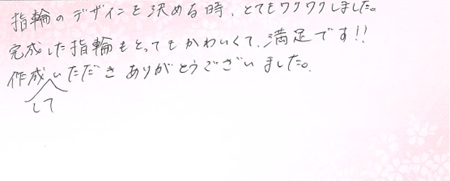 指輪のデザインを決める時、とてもワクワクしました。
完成した指輪もとってもかわいくて、満足です!!
作成していただきありがとうございました。